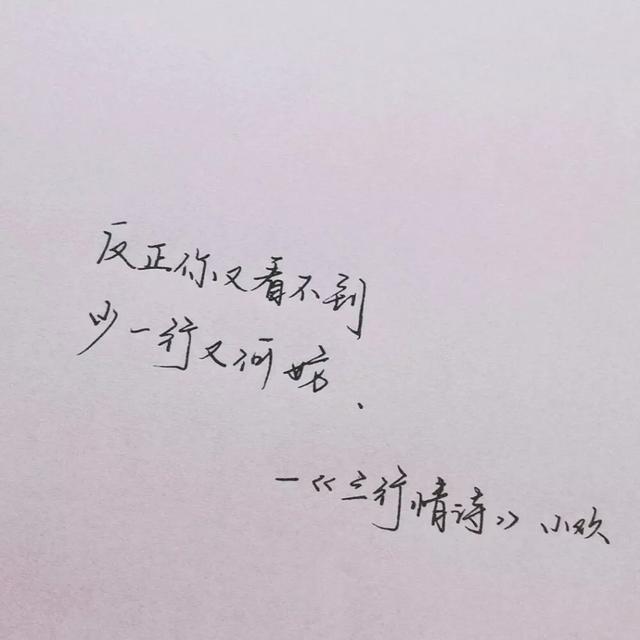 反正你又看不到
少一行又何妨.
—《三行情诗》小欢